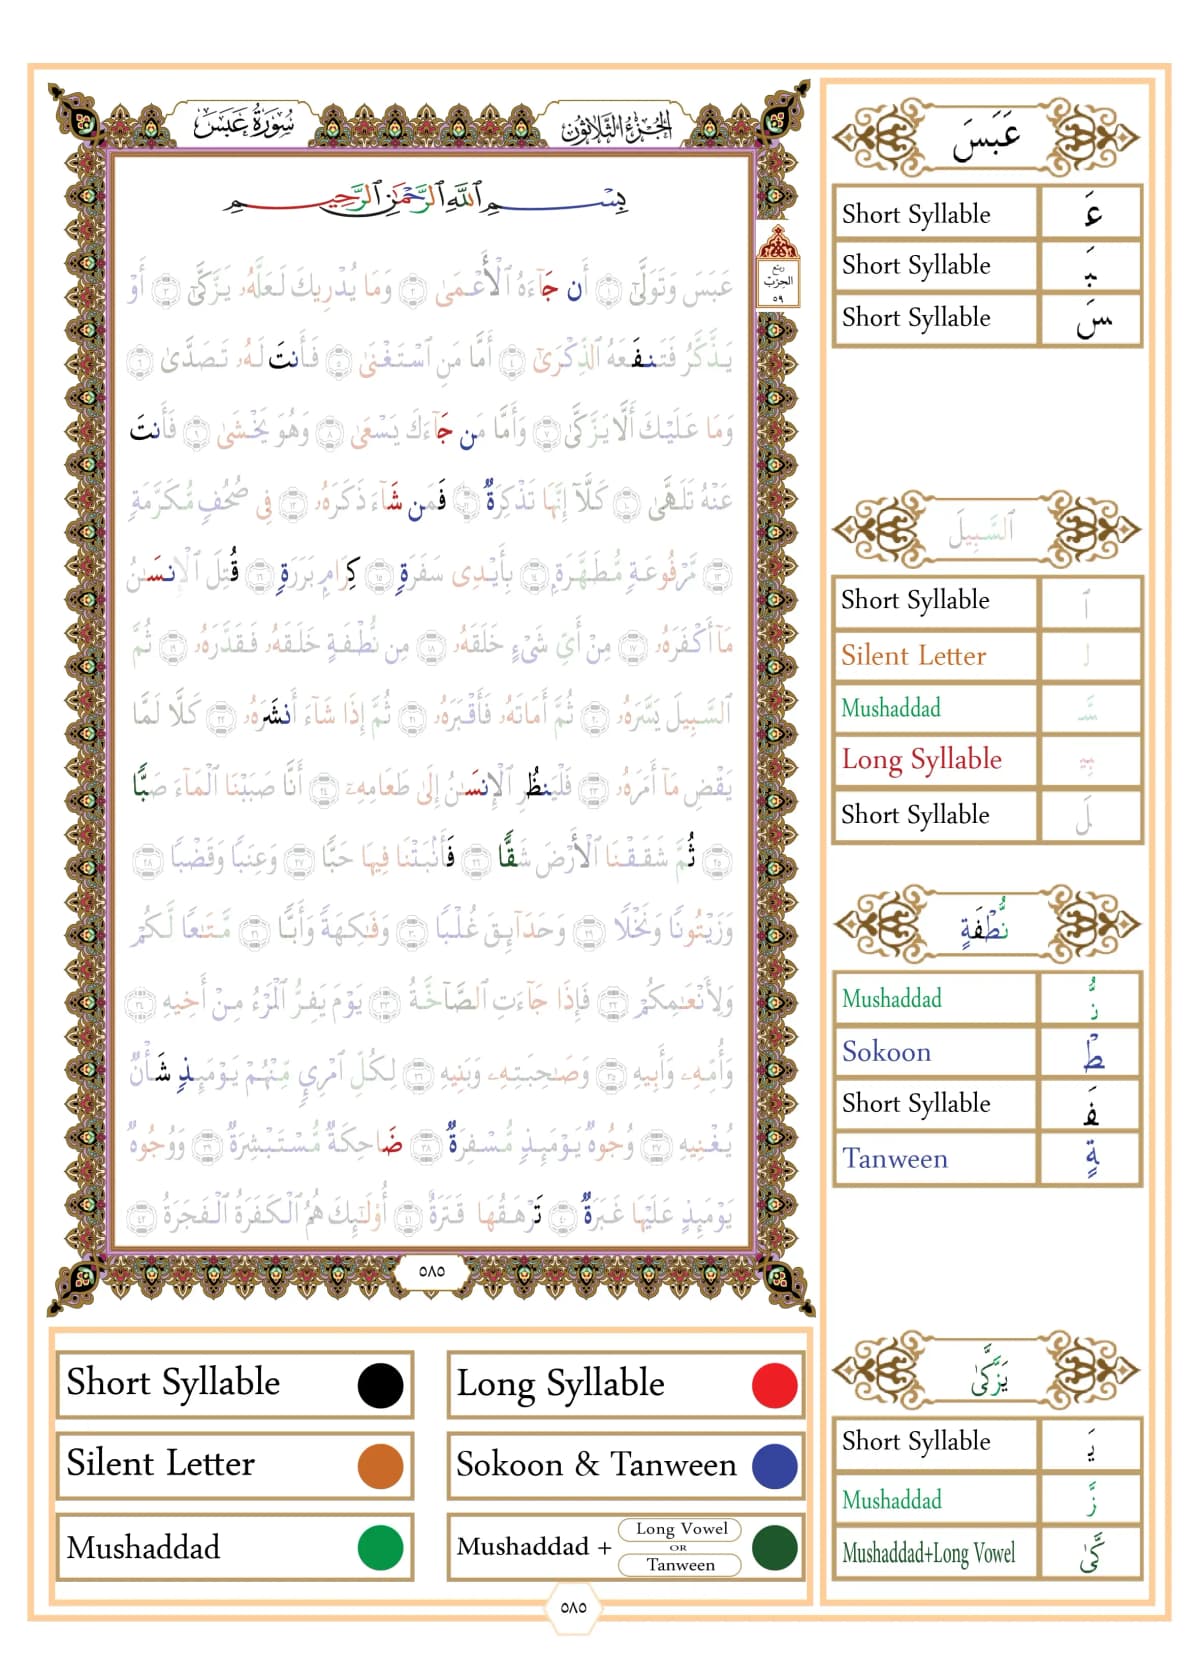 سُورَةُ عَبَسَ
الجُزْءُ الثَّلَاثُونَ
بِسْمِ ٱللَّهِ ٱلرَّحْمَٰنِ ٱلرَّحِيمِ
عَبَسَ وَتَوَلَّىٰٓ ١ أَن جَآءَهُ ٱلْأَعْمَىٰ ٢ وَمَا يُدْرِيكَ لَعَلَّهُۥ يَزَّكَّىٰٓ ٣ أَوْ
يَذَّكَّرُ فَتَنفَعَهُ ٱلذِّكْرَىٰٓ ٤ أَمَّا مَنِ ٱسْتَغْنَىٰ ٥ فَأَنتَ لَهُۥ تَصَدَّىٰ ٦
وَمَا عَلَيْكَ أَلَّا يَزَّكَّىٰ ٧ وَأَمَّا مَن جَآءَكَ يَسْعَىٰ ٨ وَهُوَ يَخْشَىٰ ٩ فَأَنتَ
عَنْهُ تَلَهَّىٰ ١٠ كَلَّآ إِنَّهَا تَذْكِرَةٌ ١١ فَمَن شَآءَ ذَكَرَهُۥ ١٢ فِى صُحُفٍ مُّكَرَّمَةٍ
١٣ مَّرْفُوعَةٍ مُّطَهَّرَةٍۭ ١٤ بِأَيْدِى سَفَرَةٍ ١٥ كِرَامٍۭ بَرَرَةٍ ١٦ قُتِلَ ٱلْإِنسَٰنُ
مَآ أَكْفَرَهُۥ ١٧ مِنْ أَىِّ شَىْءٍ خَلَقَهُۥ ١٨ مِن نُّطْفَةٍ خَلَقَهُۥ فَقَدَّرَهُۥ ١٩ ثُمَّ
ٱلسَّبِيلَ يَسَّرَهُۥ ٢٠ ثُمَّ أَمَاتَهُۥ فَأَقْبَرَهُۥ ٢١ ثُمَّ إِذَا شَآءَ أَنشَرَهُۥ ٢٢ كَلَّا لَمَّا
يَقْضِ مَآ أَمَرَهُۥ ٢٣ فَلْيَنظُرِ ٱلْإِنسَٰنُ إِلَىٰ طَعَامِهِۦٓ ٢٤ أَنَّا صَبَبْنَا ٱلْمَآءَ صَبًّا
٢٥ ثُمَّ شَقَقْنَا ٱلْأَرْضَ شَقًّا ٢٦ فَأَنۢبَتْنَا فِيهَا حَبًّا ٢٧ وَعِنَبًا وَقَضْبًا ٢٨
وَزَيْتُونًا وَنَخْلًا ٢٩ وَحَدَآئِقَ غُلْبًا ٣٠ وَفَٰكِهَةً وَأَبًّا ٣١ مَّتَٰعًا لَّكُمْ
وَلِأَنْعَٰمِكُمْ ٣٢ فَإِذَا جَآءَتِ ٱلصَّآخَّةُ ٣٣ يَوْمَ يَفِرُّ ٱلْمَرْءُ مِنْ أَخِيهِ ٣٤
وَأُمِّهِۦ وَأَبِيهِ ٣٥ وَصَٰحِبَتِهِۦ وَبَنِيهِ ٣٦ لِكُلِّ ٱمْرِئٍ مِّنْهُمْ يَوْمَئِذٍ شَأْنٌ
يُغْنِيهِ ٣٧ وُجُوهٌ يَوْمَئِذٍ مُّسْفِرَةٌ ٣٨ ضَاحِكَةٌ مُّسْتَبْشِرَةٌ ٣٩ وَوُجُوهٌ
يَوْمَئِذٍ عَلَيْهَا غَبَرَةٌ ٤٠ تَرْهَقُهَا قَتَرَةٌ ٤١ أُو۟لَٰٓئِكَ هُمُ ٱلْكَفَرَةُ ٱلْفَجَرَةُ ٤٢
٥٨٥
ربع
الحزب
٥٩
عَبَسَ
Short Syllable عَ
Short Syllable بَ
Short Syllable سَ
ٱلسَّبِيلَ
Short Syllable ٱ
Silent Letter ل
Mushaddad سَّ
Long Syllable بِي
Short Syllable لَ
نُّطْفَةٍ
Mushaddad نُّ
Sokoon طْ
Short Syllable فَ
Tanween ةٍ
يَزَّكَّىٰ
Short Syllable يَ
Mushaddad زَّ
Mushaddad+Long Vowel كَّىٰ
Short Syllable
Long Syllable
Silent Letter
Sokoon & Tanween
Mushaddad
Mushaddad + Long Vowel OR Tanween
٥٨٥